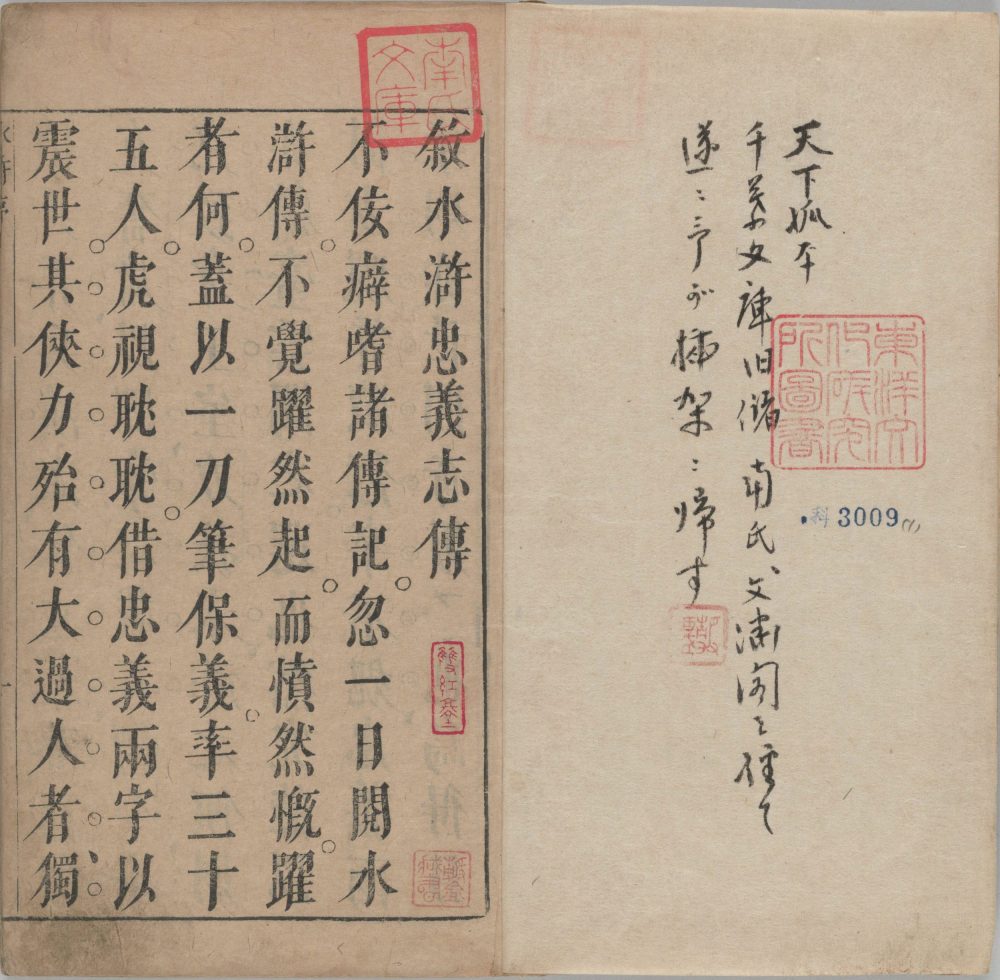 天下孤本
千葉文庫旧儲 南氏文淵閣を経て
遂ニ予が插架ニ帰す
東洋文
化研究
所圖書
科 3009(1)
南氏
文庫
敘水滸忠義志傳
雙紅堂
不佞癖嗜諸傳記。忽一日閱水
滸傳。不覺躍然起。而憤然慨。躍
者何。蓋以一刀筆保義。率三十
五人。虎視耽耽。借忠義兩字以
震世其俠力殆有大過人者獨